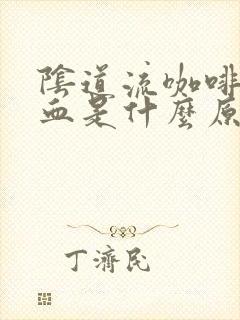 陰道流咖啡
血是什麼原
丁濟民